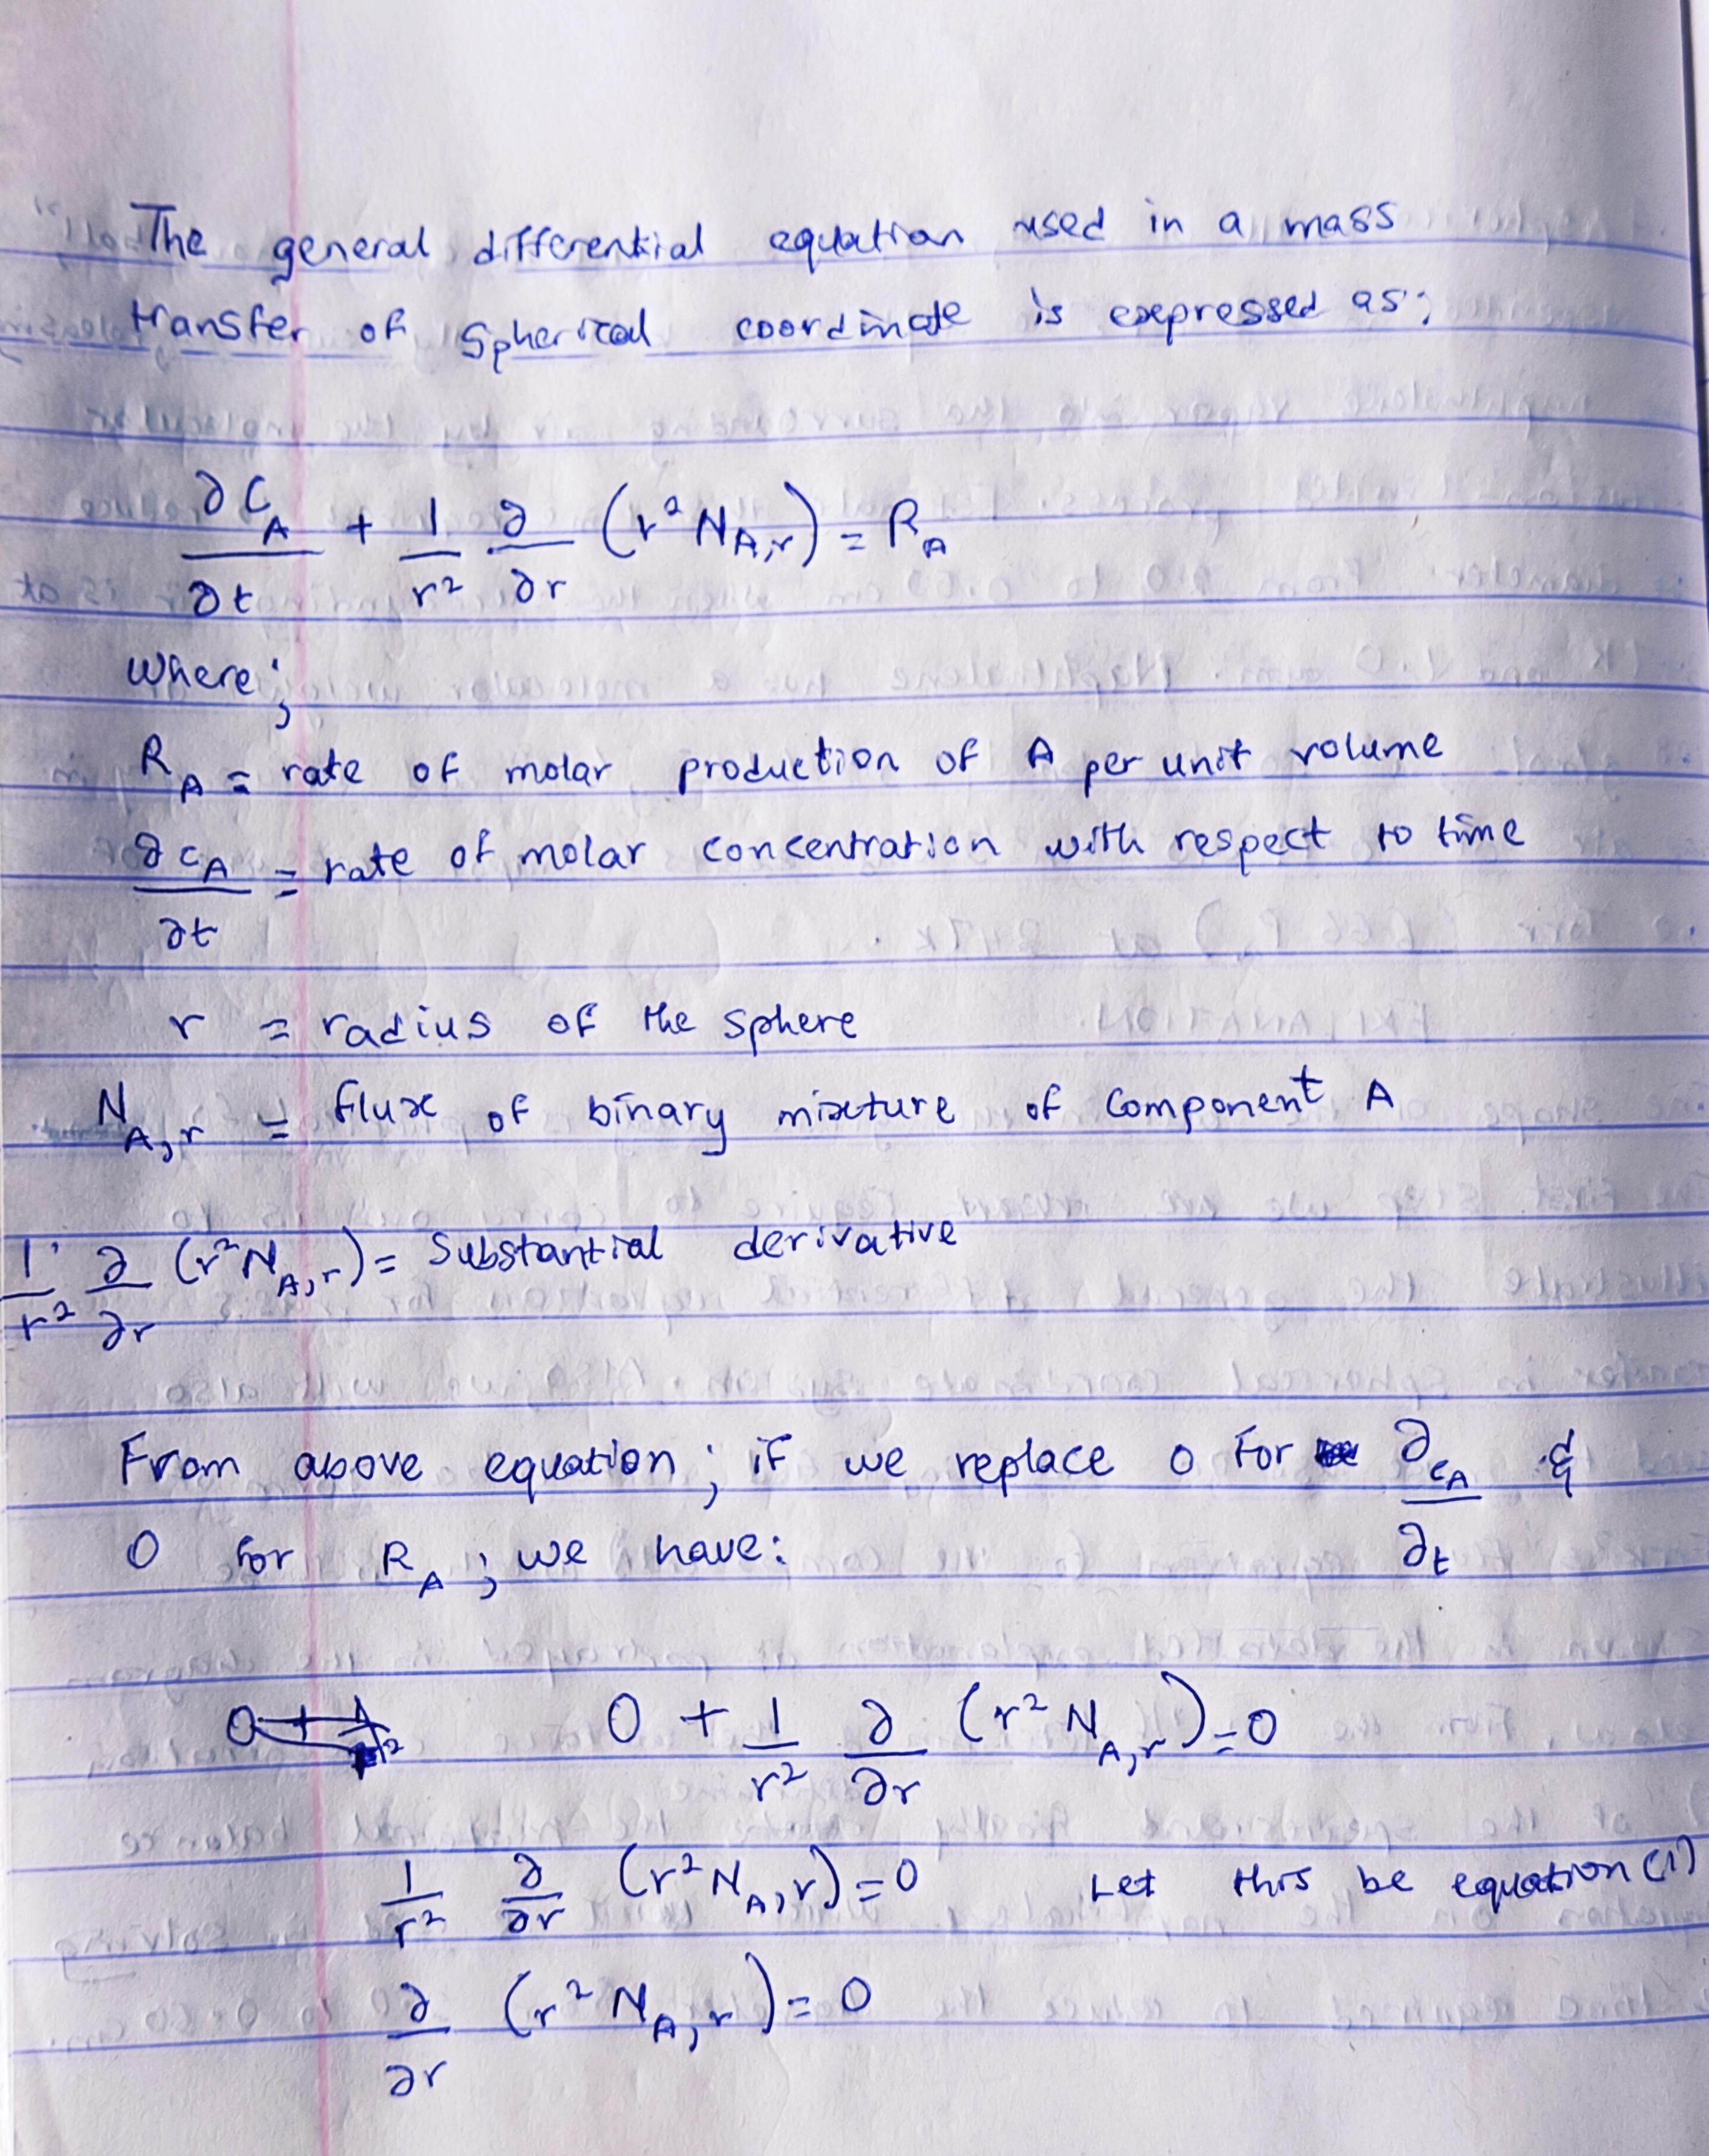 The general differential equation used in a mass
transfer of spherical coordinate is expressed as;
∂C_A/∂t + 1/r² ∂/∂r (r² N_A,r) = R_A
Where;
R_A = rate of molar production of A per unit volume
∂C_A/∂t = rate of molar concentration with respect to time
r = radius of the sphere
N_A,r = flux of binary mixture of component A
1/r² ∂/∂r (r² N_A,r) = Substantial derivative
From above equation; if we replace 0 for ∂C_A/∂t &
0 for R_A; we have:
0 + 1/r² ∂/∂r (r² N_A,r) = 0
1/r² ∂/∂r (r² N_A,r) = 0 Let this be equation (1)
∂/∂r (r² N_A,r) = 0